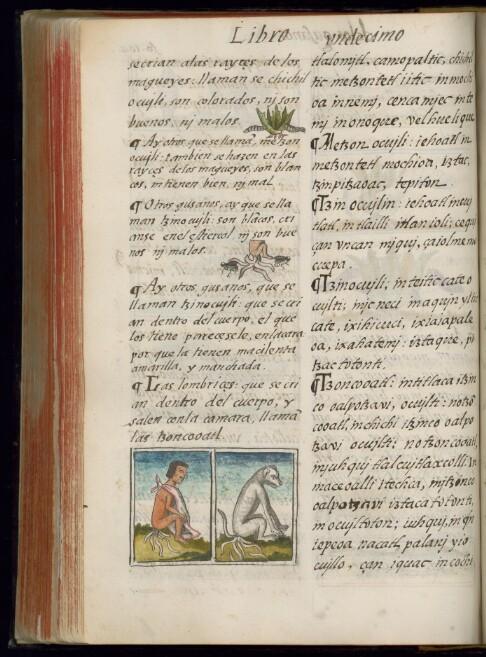 Libro vndecimo
secrian alas rayces de los
magueyes: llaman se chichil
ocuili, son colorados, nj son
buenos, nj malos.
¶ Ay otros que se llamã, metzon
ocuili: tambien se hazen en las
rayces de los magueyes, son blan
cos, nj tienen bien, nj mal.
¶ Otros gusanos, ay que se lla
man tzinocuili: son blãcos, cri
anse en el estiercol, nj son bue
nos nj malos.
¶ Ay otros gusanos, que se
llaman tzinocuili: que se cri
an dentro del cuerpo, el que
los tiene parecesele, en la cara
por que la tienen macilenta
amarilla, y manchada.
¶ Las lombrizes: que se cri
an dentro del cuerpo, y
salen con la camara, llamã
las tzoncooatl.
tlalomjtl, camopaltic, chichil
tic metzontetl iitic in moch
oa in nemj, cenca mjec in te
mj in onoque, vel huelique
¶ Metzon ocuili: iehoatl in
metzontetl mochioa, iztac,
tzinpitzaoac, tepiton.
¶ Tzin ocuilin: iehoatl incuj
tlatl, in tlailli itlan ioli; ce quj
çan vncan mjquj,
coepa.
¶ Tzinocuili; in teitic cate o
cuilti; mjc neci in aqujn yitic
cate,
oa, ixahatemj: iztaque, pi
tzactotonti.
¶ Tzoncooatl: intitlaca itzin
co oalpotzavi, ocuilti: no tzõ
cooatl, in chichi itzinco oalpo
tzavi ocuilti; no tzoncooatl,
mjuhquj tlalcujtlaxcolli in
maceoalli itechca, in itzinco
oalpotzavi iztaca totonti,
in ocujltoton; iuhquj, in qn
iopeoa nacatl palanj yio
cuillo, çan iquac in